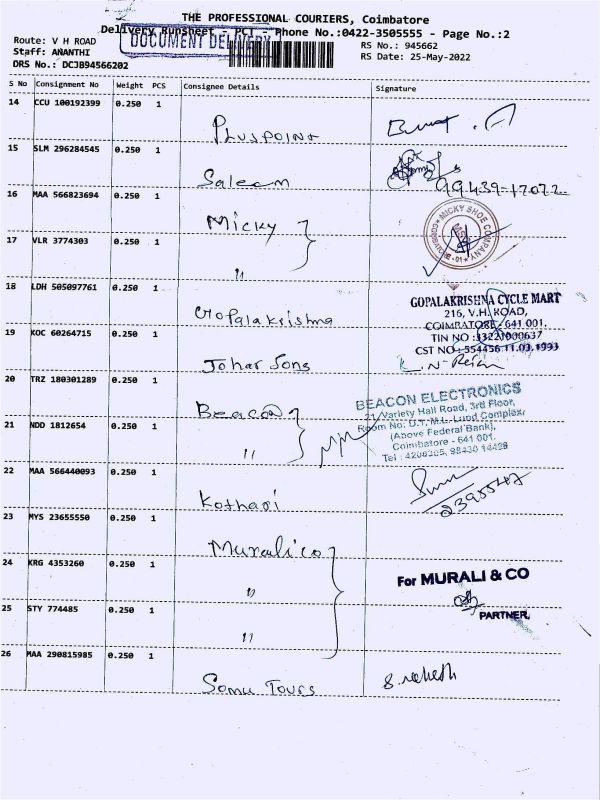 THE PROFESSIONAL COURIERS, Coimbatore
Delivery Runsheet - PCT - Phone No.:0422-3505555 - Page No.:2
DOCUMENT DELIVERY
Route: V H ROAD
RS No.: 945662
Staff: ANANTHI
RS Date: 25-May-2022
DRS No.: DCJB94566202
S No Consignment No Weight PCS Consignee Details Signature
14 CCU 100192399 0.250 1
Pluspoint
15 SLM 296284545 0.250 1
Saleem
99439-17072
16 MAA 566823694 0.250 1
Micky
MICKY SHOE COMPANY
17 VLR 3774303 0.250 1
"
18 LDH 505097761 0.250 1
Gopalakrishna
GOPALAKRISHNA CYCLE MART
216, V.H. ROAD,
COIMBATORE - 641 001.
TIN NO : 33221000637
CST NO : 554456 11.03.1993
19 KOC 60264715 0.250 1
Johar Sons
20 TRZ 180301289 0.250 1
Beacon
BEACON ELECTRONICS
21, Variety Hall Road, 3rd Floor,
Room No: U.T. M.L. Lund Complex,
(Above Federal Bank),
Coimbatore - 641 001.
Tel : 4208205, 98430 14429
21 NDD 1812654 0.250 1
"
22 MAA 566440093 0.250 1
Kothari
2395547
23 MYS 23655550 0.250 1
Murali co
24 KRG 4353260 0.250 1
"
For MURALI & CO
PARTNER
25 STY 774485 0.250 1
"
26 MAA 290815985 0.250 1
Somu Tours